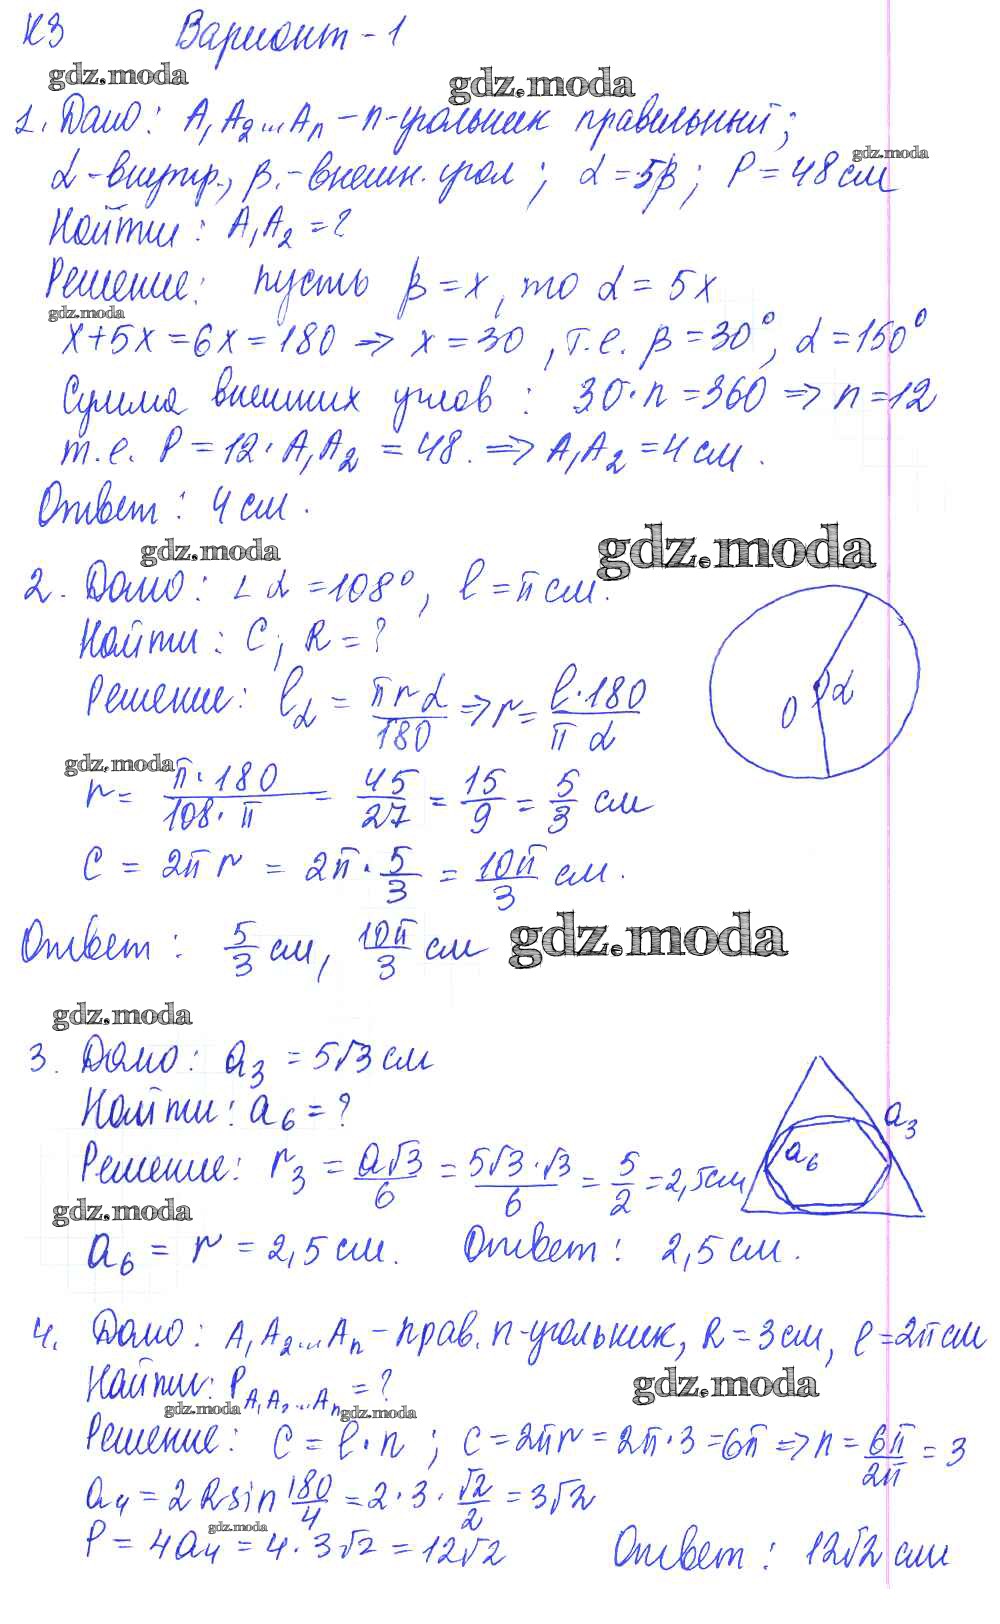 К3 Вариант - 1
gdz.moda gdz.moda
1. Дано: A₁A₂...Aₙ - n-угольник правильный;
gdz.moda
α - внутр., β - внешн. угол; α = 5β; P = 48 см
Найти: A₁A₂ = ?
Решение: пусть β = x, то α = 5x
gdz.moda
x + 5x = 6x = 180 => x = 30, т.е. β = 30°, α = 150°
Сумма внешних углов: 30·n = 360 => n = 12
т.е. P = 12·A₁A₂ = 48. => A₁A₂ = 4 см.
Ответ: 4 см.
gdz.moda gdz.moda
2. Дано: ∠α = 108°, l = π см.
Найти: C, R = ?
Решение: l_α = πrα/180 => r = l·180/πα
O α
gdz.moda
r = π·180/108·π = 45/27 = 15/9 = 5/3 см
C = 2πr = 2π·5/3 = 10π/3 см.
Ответ: 5/3 см, 10π/3 см
gdz.moda
gdz.moda
3. Дано: a₃ = 5√3 см
Найти: a₆ = ?
a₃
a₆
Решение: r₃ = a√3/6 = 5√3·√3/6 = 5/2 = 2,5 см
gdz.moda
a₆ = r = 2,5 см. Ответ: 2,5 см.
4. Дано: A₁A₂...Aₙ - прав. n-угольник, R = 3 см, l = 2π см
Найти: P_A₁A₂...Aₙ = ?
gdz.moda
gdz.moda gdz.moda
Решение: C = l·n; C = 2πr = 2π·3 = 6π => n = 6π/2π = 3
a₄ = 2R sin 180/4 = 2·3·√2/2 = 3√2
gdz.moda
P = 4a₄ = 4·3√2 = 12√2 Ответ: 12√2 см